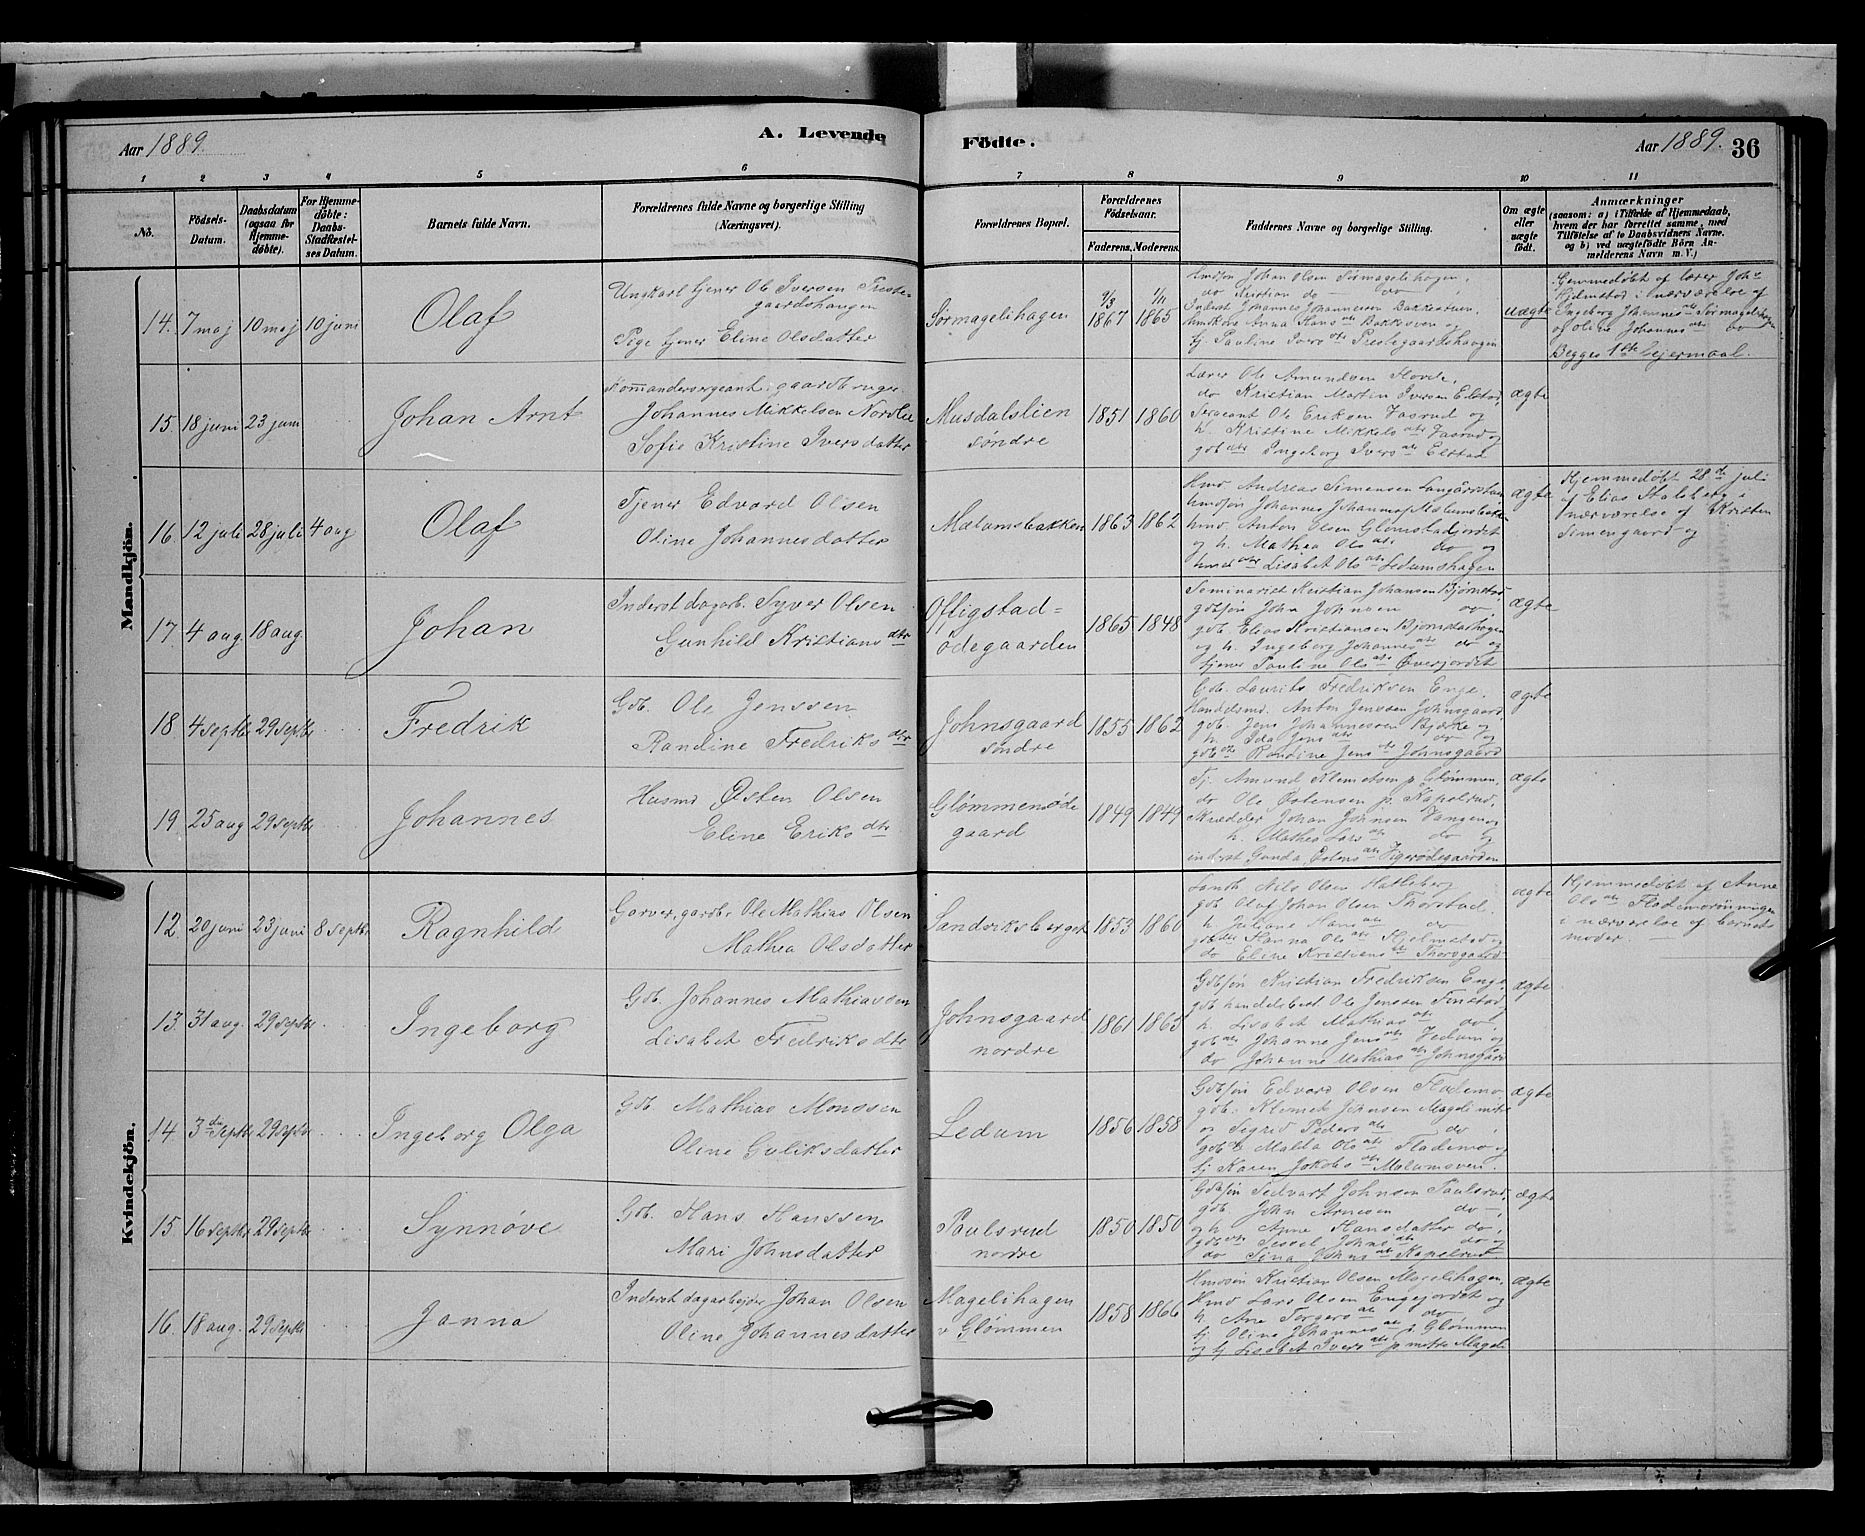 Aar 1889.
A. Levende Födte.
Aar 1889. 36
1 2 3 4 5 6 7 8 9 10 11
No.
Födsels-Datum.
Daabsdatum (ogsaa for Hjemme-döbte).
For Hjemme-döbte: Daabs-Stadfæstel-ses Datum.
Barnets fulde Navn.
Forældrenes fulde Navne og borgerlige Stilling (Næringsvei).
Forældrenes Bopæl.
Forældrenes Födselsaar.
Faderens. Moderens.
Faddernes Navne og borgerlige Stilling.
Om ægte eller uægte födt.
Anmærkninger
(saasom: a) i Tilfælde af Hjemmedaab, hvem der har forrettet samme, med Tilföielse af to Daabsvidners Navne, og b) ved uægtefödte Börn An-melderens Navn m. V.)
Mandkjön.
14. 7 maj 10 maj 10 juni Olaf
Ungkarl tjener Ole Iversen Preste-
gaardshaugen
Pige tjener Eline Olsdatter
Sørmagelihagen 9/3 1867 1/11 1865
Hmdsøn Johan Olsen Sørmagelihagen,
do Kristian do do
Inderst Johannes Johannessen Bakkestuen,
hmkone Anna Hans dtr Bakksven og
tj. Pauline Ivers dtr Prestegaardshaugen
uægte
Hjemmedøbt af lærer Johs
Hjelmstad i nærværelse af
Ingeborg Johannes dtr Sørmagelihagen
og Oline Johannes dtr do
Begges 1ste Lejermaal.
15. 18 juni 23 juni Johan Arnt
Kommandersergeant, gaardbruger
Johannes Mikkelsen Nordlie
Sofie Kristine Iversdatter
Musdalslien
søndre
1851 1860
Lærer Ole Amundsen Hovde,
do Kristian Martin Iversen Elstad,
Sergeant Ole Eriksen Vasrud og
h. Kristine Mikkels dtr Vasrud og
gdb dtr Ingeborg Ivers dtr Elstad
ægte
16. 12 juli 28 juli 4 aug Olaf
Tjener Edvard Olsen
Oline Johannesdatter
Mælumsbakken 1863 1862
Hmd Andreas Simensen
hmdsøn Johannes Johannes Mælumsbakken
hmd. Anton Olsen Glømstadjordet
og h. Mathea Ols dtr do og
hmd dtr Lisabet Ols dtr Ledumshagen
ægte
Hjemmedøbt 28de juli
af Elias Stalsberg i
nærværelse af Kristen
Simengaard og
17. 4 aug. 18 aug. Johan
Inderst dagarb. Syver Olsen
Gunhild Kristians dtr
Offigstad=
ødegaarden
1865 1848
Seminarist Kristian Johansen Bjørnstad,
gdbsøn John Johnsen do,
gdb. Elias Kristiansen Bjørnstadhagen
og h. Ingeborg Johannes dtr do og
tjener Pauline Ols dtr Øverjordet
ægte
18. 4 septbr 29 septbr Fredrik
Gdb. Ole Jenssen
Randine Fredriks dtr
Johnsgaard
søndre
1855 1862
Gdb. Laurits Fredriksen Enge,
Handelsmd. Anton Jenssen Johnsgaard,
gdb. Jens Johannessen Bjerke og
h. Ida Jens dtr do og
gdb dtr Randine Jens dtr Johnsgaard
ægte
19. 25 aug 29 septbr Johannes
Husmd Østen Olsen
Eline Eriks dtr
Glømmensøde
gaard
1849 1849
Tj. Amund Klemetsen p. Glømmen,
do Ole Østensen p. Kapelrud,
Skrædder Johan Johnsen Vangen og
h. Mathea Lars dtr do og
inderst Gunda Estens dtr
ægte
Kvindekjön.
12. 20 juni 23 juni 8 septbr Ragnhild
Garver, gardbr Ole Mathias Olsen
Mathea Olsdatter
Sandviksberget 1853 1860
Landh. Nils Olsen Hatleberg
gdb. Olaf Johan Olsen Thorstad,
h. Juliane Hans dtr do
gdb dtr Hanna Ols dtr Hjelmstad og
do Eline Kristians dtr Thorsgaard
ægte
Hjemmedøbt af Anne
Ols dtr Flademorønningen
i nærværelse af barnets
moder
13. 31 aug. 29 septbr Ingeborg
Gdb. Johannes Mathiassen
Lisabet Fredriks dtr
Johnsgaard
nordre
1861 1863
Gdbsøn Kristian Fredriksen Enge,
gdb. handelsbest Ole Jenssen Finstad
h. Lisabet Mathias dtr do,
gdb dtr Johanne Jens dtr Ledum og
do Johanne Mathias dtr Johnsgaard
ægte
14. 3die septbr 29 septbr Ingeborg Olga
Gdb. Mathias Monssen
Oline Guliksdatter
Ledum 1856 1858
Gdbsøn Edvard Olsen Flademo,
gdb. Klemet Johnsen Magelimitre
og Sigrid Peders dtr do,
gdb dtr Malla Ols dtr Flademo og
tj. Karen Jakobs dtr Mælumsveen.
ægte
15. 16 septbr 29 septbr Synnøve
Gdb. Hans Hanssen
Mari Johnsdatter
Paulsrud
nordre
1850 1850
Gdbsøn Sedvart Johnsen Paulsrud,
gdb. John Arnesen do,
og h. Anne Hansdatter do,
gdb dtr Sessel Johns dtr do og
do Sina Johns dtr Kapelrud
ægte
16. 18 aug. 29 septbr Janna
Inderst dagarbejder Johan Olsen
Oline Johannesdatter
Magelihagen
v Glømmen
1858 1866
Hmdsøn Kristian Olsen Magelihagen,
Hmd Lars Olsen Engejordet og
h. Ane Torgers dtr do
tj. Oline Johannes dtr p. Glømmen
og tj. Lisabet Ivers dtr p. mitre Mageli
ægte